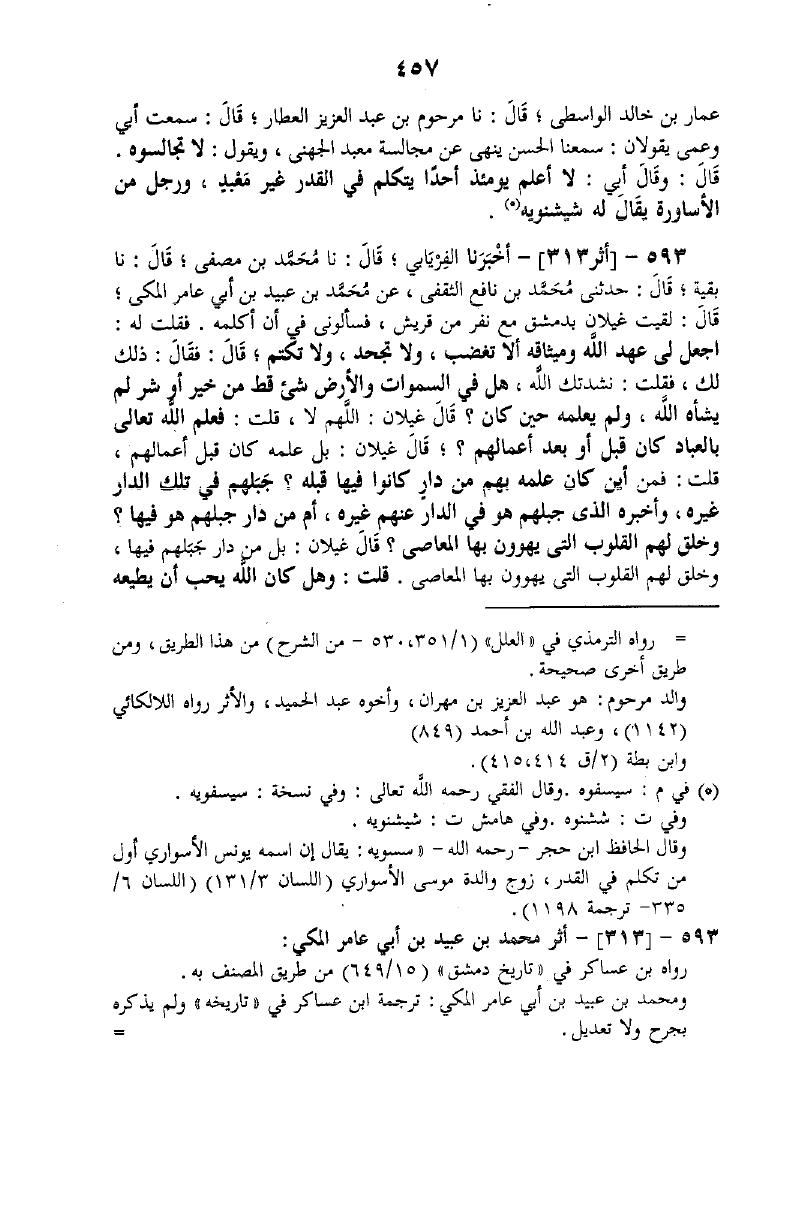 ٤٥٧
عمار بن خالد الواسطى ؛ قَالَ : نا مرحوم بن عبد العزيز العطار ؛ قَالَ : سمعت أبي
وعمى يقولان : سمعنا الحسن ينهى عن مجالسة معبد الجهنى ، ويقول : لا تجالسوه .
قَالَ : وقَالَ أبي : لا أعلم يومئذ أحدًا يتكلم في القدر غير مَعْبدٍ ، ورجل من
الأساورة يقَالَ له شيشنويه(*) .
٥٩٣ - [أثر٣١٣] - أخْبَرَنا الفِرْيَابي ؛ قَالَ : نا مُحَمَّد بن مصفى ؛ قَالَ : نا
بقية ؛ قَالَ : حدثنى مُحَمَّد بن نافع الثقفى ، عن مُحَمَّد بن عبيد بن أبي عامر المكى ؛
قَالَ : لقيت غيلان بدمشق مع نفر من قريش ، فسألونى في أن أكلمه . فقلت له :
اجعل لى عهد اللَّه وميثاقه ألا تغضب ، ولا تجحد ، ولا تكتم ؛ قَالَ : فقَالَ : ذلك
لك ، فقلت : نشدتك اللَّه ، هل في السموات والأرض شئ قط من خير أو شر لم
يشأه اللَّه ، ولم يعلمه حين كان ؟ قَالَ غيلان : اللَّهم لا ، قلت : فعلم اللَّه تعالى
بالعباد كان قبل أو بعد أعمالهم ؟ ؛ قَالَ غيلان : بل علمه كان قبل أعمالهم ،
قلت : فمن أين كان علمه بهم من دارٍ كانوا فيها قبله ؟ جَبَلهم في تلك الدار
غيره ، وأخبره الذى جبلهم هو في الدار عنهم غيره ، أم من دار جبلهم هو فيها ؟
وخلق لهم القلوب التى يهوون بها المعاصى ؟ قَالَ غيلان : بل من دار جَبَلهم فيها ،
وخلق لهم القلوب التى يهوون بها المعاصى . قلت : وهل كان اللَّه يحب أن يطيعه
= رواه الترمذي في «العلل» (٥٣٠،٣٥١/١ - من الشرح) من هذا الطريق ، ومن
طريق أخرى صحيحة .
والد مرحوم : هو عبد العزيز بن مهران ، وأخوه عبد الحميد ، والأثر رواه اللالكائي
(١١٤٢) ، وعبد الله بن أحمد (٨٤٩)
وابن بطة (٢/ق ٤١٥،٤١٤) .
(*) في م : سيسفوه .وقال الفقي رحمه اللَّه تعالى : وفي نسخة : سيسفويه .
وفي ت : ششنوه .وفي هامش ت : شيشنويه .
وقال الحافظ ابن حجر - رحمه الله - «سسويه : يقال إن اسمه يونس الأسواري أول
من تكلم في القدر ، زوج والدة موسى الأسواري (اللسان ١٣١/٣) (اللسان ٦/
٣٣٥- ترجمة ١١٩٨) .
٥٩٣ - [٣١٣] - أثر محمد بن عبيد بن أبي عامر المكي :
رواه بن عساكر في «تاريخ دمشق» (٦٤٩/١٥) من طريق المصنف به .
ومحمد بن عبيد بن أبي عامر المكي : ترجمة ابن عساكر في «تاريخه» ولم يذكره
بجرح ولا تعديل . =